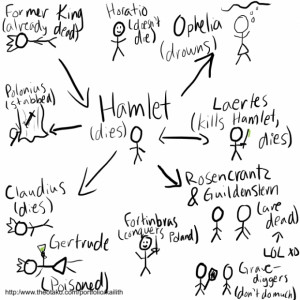 Former King
(already dead)
Horatio
(doesn't
die)
Ophelia
(drowns)
Polonius
(stabbed)
Hamlet
(dies)
Laertes
(kills Hamlet,
dies)
Claudius
(dies)
Rosencrantz
& Guildenstern
(are
dead)
LOL XD
Fortinbras
(conquers
Poland)
Gertrude
(Poisoned)
Grave-
diggers
(don't do much)